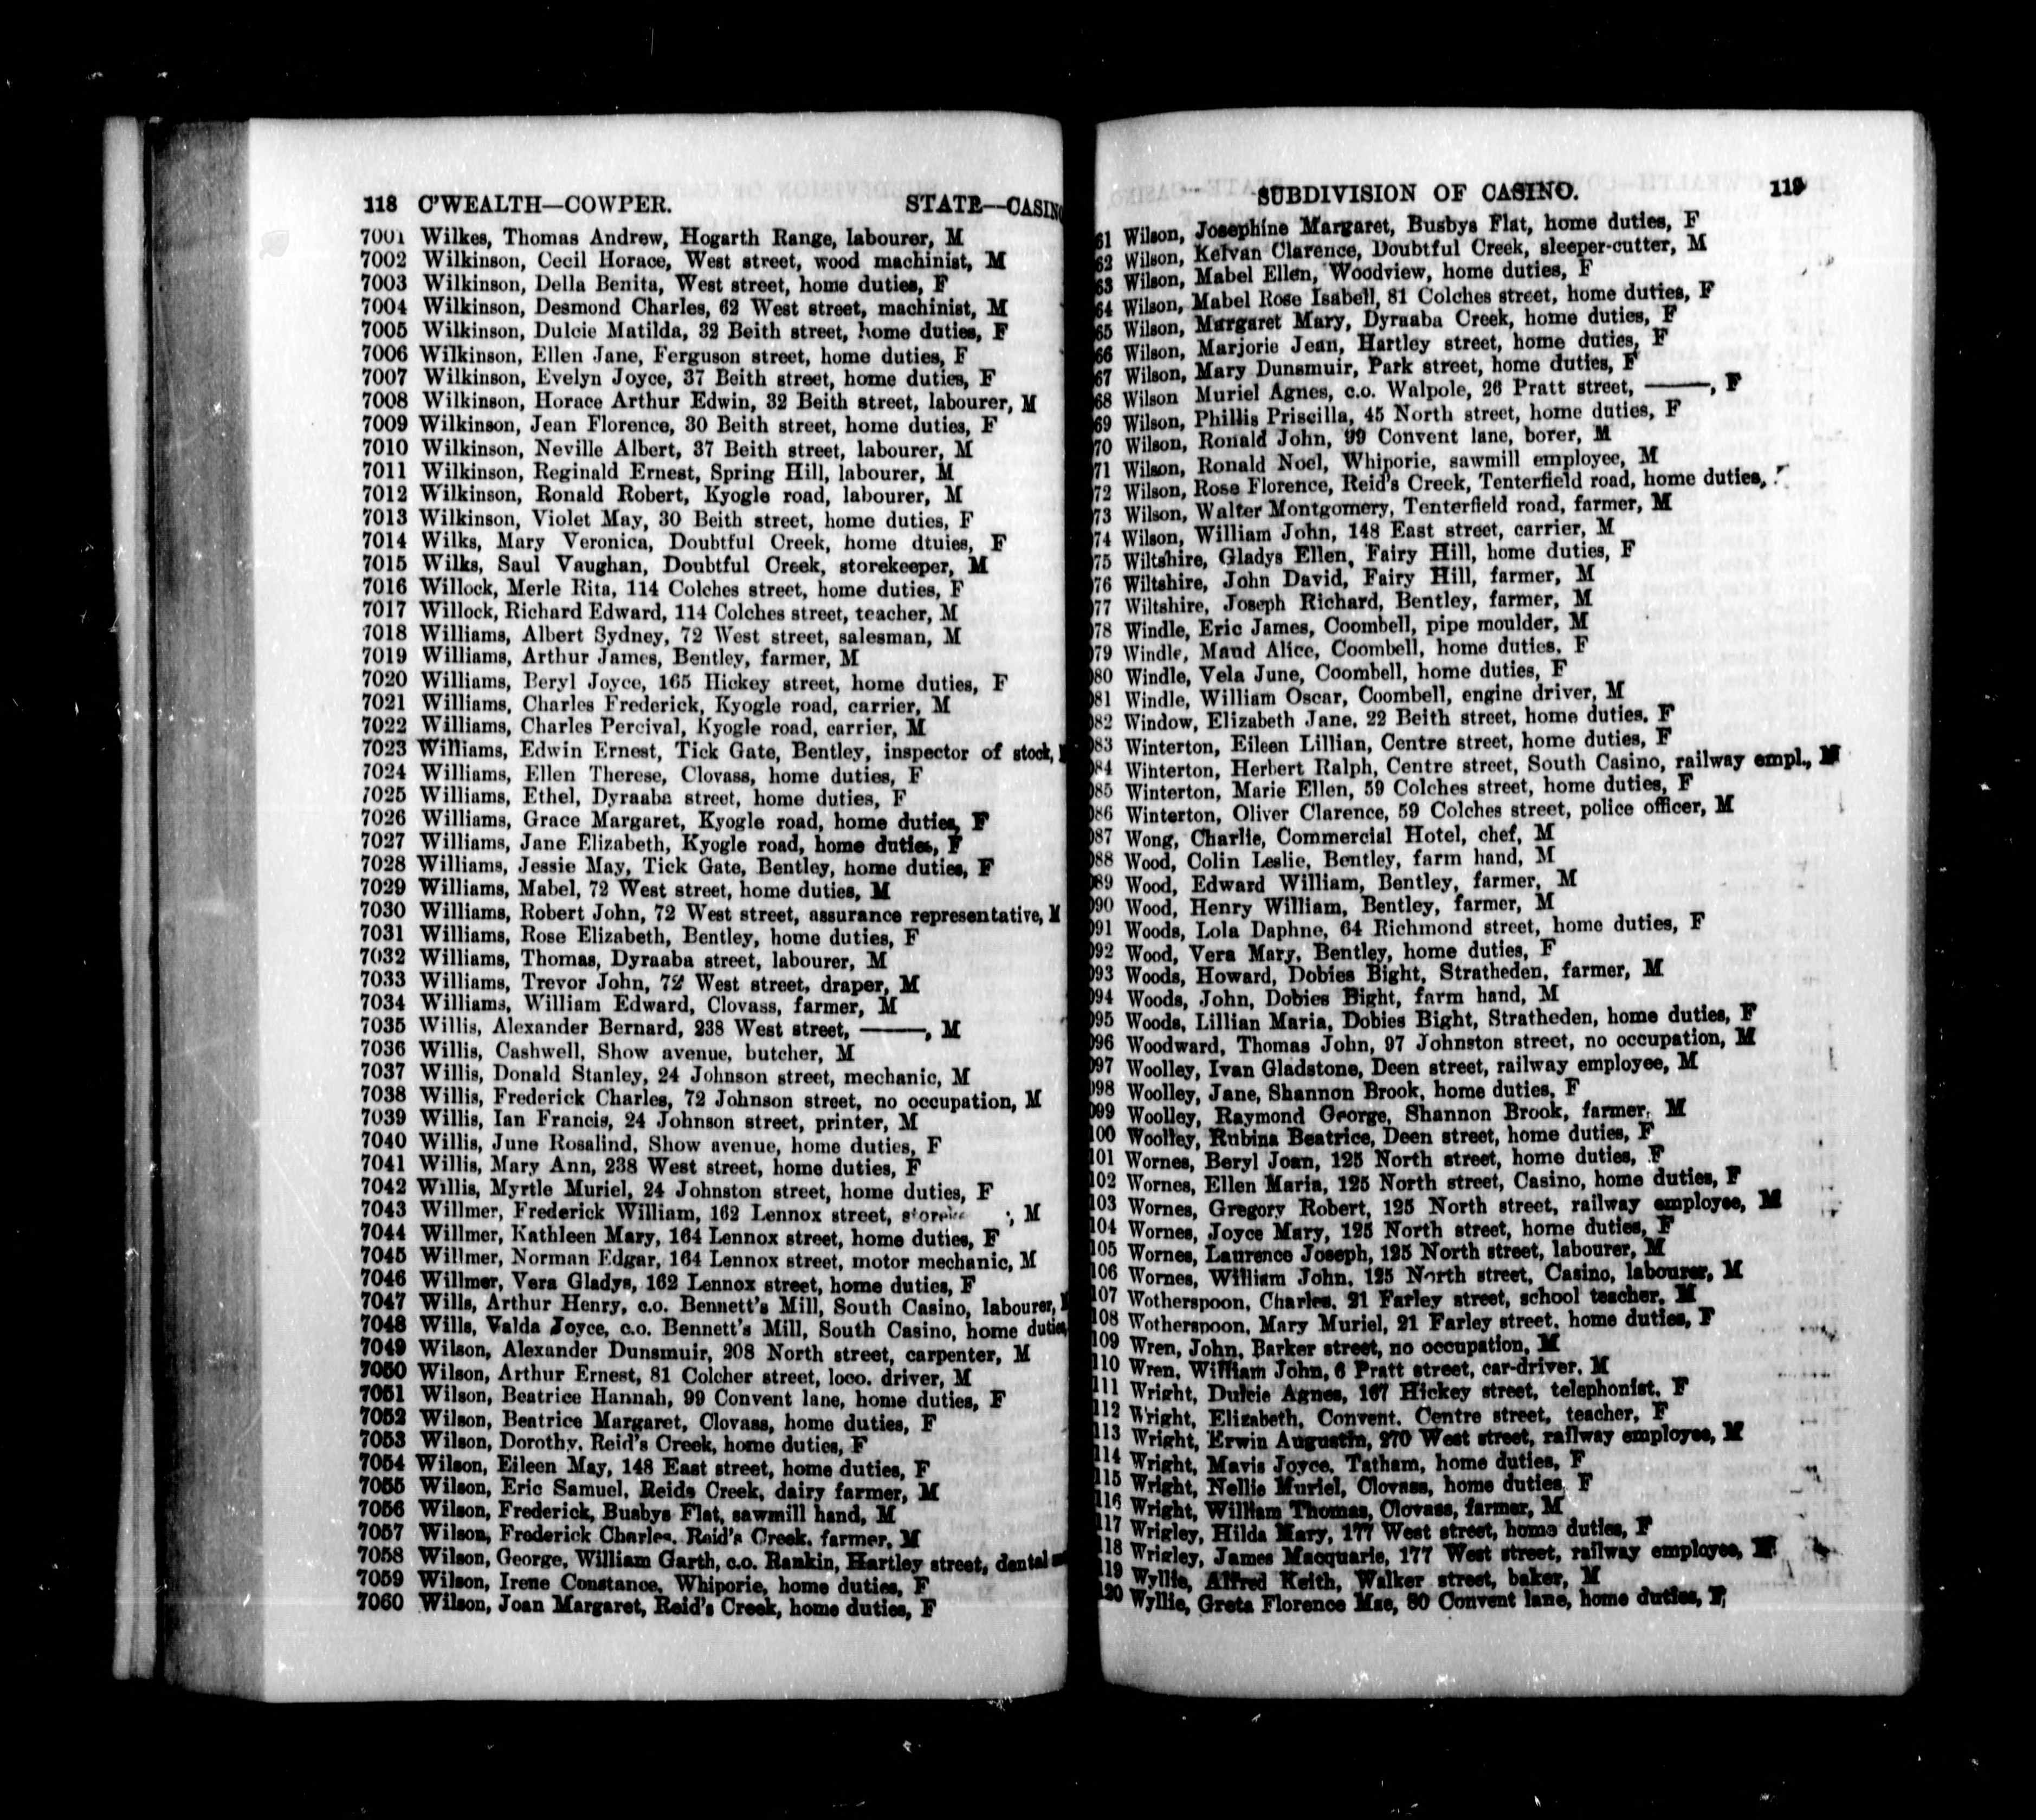 118 C'WEALTH—COWPER. STATE—CASINO
7001 Wilkes, Thomas Andrew, Hogarth Range, labourer, M
7002 Wilkinson, Cecil Horace, West street, wood machinist, M
7003 Wilkinson, Della Benita, West street, home duties, F
7004 Wilkinson, Desmond Charles, 62 West street, machinist, M
7005 Wilkinson, Dulcie Matilda, 32 Beith street, home duties, F
7006 Wilkinson, Ellen Jane, Ferguson street, home duties, F
7007 Wilkinson, Evelyn Joyce, 37 Beith street, home duties, F
7008 Wilkinson, Horace Arthur Edwin, 32 Beith street, labourer, M
7009 Wilkinson, Jean Florence, 30 Beith street, home duties, F
7010 Wilkinson, Neville Albert, 37 Beith street, labourer, M
7011 Wilkinson, Reginald Ernest, Spring Hill, labourer, M
7012 Wilkinson, Ronald Robert, Kyogle road, labourer, M
7013 Wilkinson, Violet May, 30 Beith street, home duties, F
7014 Wilks, Mary Veronica, Doubtful Creek, home dtuies, F
7015 Wilks, Saul Vaughan, Doubtful Creek, storekeeper, M
7016 Willock, Merle Rita, 114 Colches street, home duties, F
7017 Willock, Richard Edward, 114 Colches street, teacher, M
7018 Williams, Albert Sydney, 72 West street, salesman, M
7019 Williams, Arthur James, Bentley, farmer, M
7020 Williams, Beryl Joyce, 165 Hickey street, home duties, F
7021 Williams, Charles Frederick, Kyogle road, carrier, M
7022 Williams, Charles Percival, Kyogle road, carrier, M
7023 Williams, Edwin Ernest, Tick Gate, Bentley, inspector of stock,
7024 Williams, Ellen Therese, Clovass, home duties, F
7025 Williams, Ethel, Dyraaba street, home duties, F
7026 Williams, Grace Margaret, Kyogle road, home duties, F
7027 Williams, Jane Elizabeth, Kyogle road, home duties, F
7028 Williams, Jessie May, Tick Gate, Bentley, home duties, F
7029 Williams, Mabel, 72 West street, home duties, M
7030 Williams, Robert John, 72 West street, assurance representative, M
7031 Williams, Rose Elizabeth, Bentley, home duties, F
7032 Williams, Thomas, Dyraaba street, labourer, M
7033 Williams, Trevor John, 72 West street, draper, M
7034 Williams, William Edward, Clovass, farmer, M
7035 Willis, Alexander Bernard, 238 West street, ———, M
7036 Willis, Cashwell, Show avenue, butcher, M
7037 Willis, Donald Stanley, 24 Johnson street, mechanic, M
7038 Willis, Frederick Charles, 72 Johnson street, no occupation, M
7039 Willis, Ian Francis, 24 Johnson street, printer, M
7040 Willis, June Rosalind, Show avenue, home duties, F
7041 Willis, Mary Ann, 238 West street, home duties, F
7042 Willis, Myrtle Muriel, 24 Johnston street, home duties, F
7043 Willmer, Frederick William, 162 Lennox street, M
7044 Willmer, Kathleen Mary, 164 Lennox street, home duties, F
7045 Willmer, Norman Edgar, 164 Lennox street, motor mechanic, M
7046 Willmer, Vera Gladys, 162 Lennox street, home duties, F
7047 Wills, Arthur Henry, c.o. Bennett's Mill, South Casino, labourer,
7048 Wills, Valda Joyce, c.o. Bennett's Mill, South Casino, home duties
7049 Wilson, Alexander Dunsmuir, 208 North street, carpenter, M
7050 Wilson, Arthur Ernest, 81 Colcher street, loco. driver, M
7051 Wilson, Beatrice Hannah, 99 Convent lane, home duties, F
7052 Wilson, Beatrice Margaret, Clovass, home duties, F
7053 Wilson, Dorothy, Reid's Creek, home duties, F
7054 Wilson, Eileen May, 148 East street, home duties, F
7055 Wilson, Eric Samuel, Reids Creek, dairy farmer, M
7056 Wilson, Frederick, Busbys Flat, sawmill hand, M
7057 Wilson, Frederick Charles, Reid's Creek, farmer, M
7058 Wilson, George, William Garth, c.o. Rankin, Hartley street, dental
7059 Wilson, Irene Constance, Whiporie, home duties, F
7060 Wilson, Joan Margaret, Reid's Creek, home duties, F
SUBDIVISION OF CASINO. 119
61 Wilson, Josephine Margaret, Busbys Flat, home duties, F
62 Wilson, Kelvan Clarence, Doubtful Creek, sleeper-cutter, M
63 Wilson, Mabel Ellen, Woodview, home duties, F
64 Wilson, Mabel Rose Isabell, 81 Colches street, home duties, F
65 Wilson, Margaret Mary, Dyraaba Creek, home duties, F
66 Wilson, Marjorie Jean, Hartley street, home duties, F
67 Wilson, Mary Dunsmuir, Park street, home duties, F
68 Wilson Muriel Agnes, c.o. Walpole, 26 Pratt street, ———, F
69 Wilson, Phillis Priscilla, 45 North street, home duties, F
70 Wilson, Ronald John, 99 Convent lane, borer, M
71 Wilson, Ronald Noel, Whiporie, sawmill employee, M
72 Wilson, Rose Florence, Reid's Creek, Tenterfield road, home duties,
73 Wilson, Walter Montgomery, Tenterfield road, farmer, M
74 Wilson, William John, 148 East street, carrier, M
75 Wiltshire, Gladys Ellen, Fairy Hill, home duties, F
76 Wiltshire, John David, Fairy Hill, farmer, M
77 Wiltshire, Joseph Richard, Bentley, farmer, M
078 Windle, Eric James, Coombell, pipe moulder, M
079 Windle, Maud Alice, Coombell, home duties, F
080 Windle, Vela June, Coombell, home duties, F
081 Windle, William Oscar, Coombell, engine driver, M
082 Window, Elizabeth Jane, 22 Beith street, home duties, F
083 Winterton, Eileen Lillian, Centre street, home duties, F
084 Winterton, Herbert Ralph, Centre street, South Casino, railway empl., M
085 Winterton, Marie Ellen, 59 Colches street, home duties, F
086 Winterton, Oliver Clarence, 59 Colches street, police officer, M
087 Wong, Charlie, Commercial Hotel, chef, M
088 Wood, Colin Leslie, Bentley, farm hand, M
089 Wood, Edward William, Bentley, farmer, M
090 Wood, Henry William, Bentley, farmer, M
091 Woods, Lola Daphne, 64 Richmond street, home duties, F
092 Wood, Vera Mary, Bentley, home duties, F
093 Woods, Howard, Dobies Bight, Stratheden, farmer, M
094 Woods, John, Dobies Bight, farm hand, M
095 Woods, Lillian Maria, Dobies Bight, Stratheden, home duties, F
096 Woodward, Thomas John, 97 Johnston street, no occupation, M
097 Woolley, Ivan Gladstone, Deen street, railway employee, M
098 Woolley, Jane, Shannon Brook, home duties, F
099 Woolley, Raymond George, Shannon Brook, farmer, M
100 Woolley, Rubina Beatrice, Deen street, home duties, F
101 Wornes, Beryl Joan, 125 North street, home duties, F
102 Wornes, Ellen Maria, 125 North street, Casino, home duties, F
103 Wornes, Gregory Robert, 125 North street, railway employee, M
104 Wornes, Joyce Mary, 125 North street, home duties, F
105 Wornes, Laurence Joseph, 125 North street, labourer, M
106 Wornes, William John, 125 North street, Casino, labourer, M
107 Wotherspoon, Charles, 21 Farley street, school teacher, M
108 Wotherspoon, Mary Muriel, 21 Farley street, home duties, F
109 Wren, John, Barker street, no occupation, M
110 Wren, William John, 6 Pratt street, car-driver, M
111 Wright, Dulcie Agnes, 167 Hickey street, telephonist, F
112 Wright, Elizabeth, Convent, Centre street, teacher, F
113 Wright, Erwin Augustin, 270 West street, railway employee, M
114 Wright, Mavis Joyce, Tatham, home duties, F
115 Wright, Nellie Muriel, Clovass, home duties, F
116 Wright, William Thomas, Clovass, farmer, M
117 Wrigley, Hilda Mary, 177 West street, home duties, F
118 Wrigley, James Macquarie, 177 West street, railway employee, M
119 Wyllie, Alfred Keith, Walker street, baker, M
120 Wyllie, Greta Florence Mae, 80 Convent lane, home duties, F